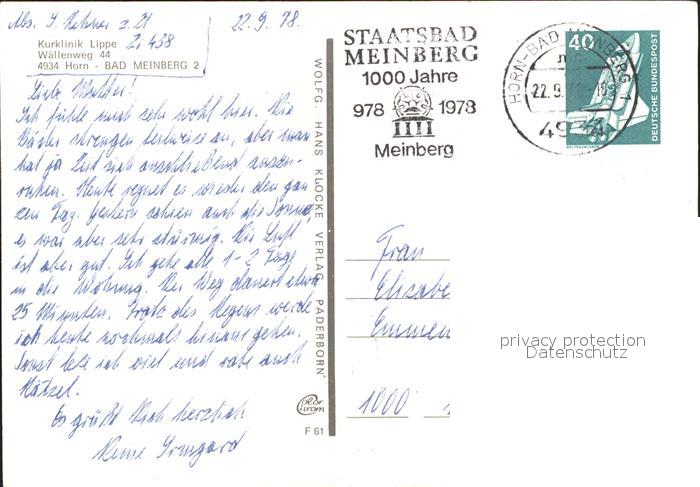 Abs. I. Rehner z. Zt
22.9.78.
Kurklinik Lippe Zi 438
Wällenweg 44
4934 Horn - BAD MEINBERG 2
Liebe Mutter!
Ich fühle mich sehr wohl hier. Die
Bäder strengen teilweise an, aber man
hat ja Zeit sich anschließend auszu-
ruhen. Heute regnet es wieder den gan
zen Tag. Gestern schien auch die Sonne,
es war aber sehr stürmig. Die Luft
ist aber gut. Ich gehe alle 1-2 Tage
in die Wohnung. Der Weg dauert etwa
25 Minuten. Trotz des Regens werde
ich heute nochmals hinaus gehen.
Sonst lese ich viel und rate auch
Rätzel.
Es grüßt Dich herzlich
Deine Irmgard
WOLFG. HANS KLOCKE VERLAG PADERBORN
F 61
STAATSBAD
MEINBERG
1000 Jahre
978 1978
Meinberg
HORN-BAD MEINBERG
22.9.
4934
40
DEUTSCHE BUNDESPOST
Frau
Elisabe
Emmen
1000
privacy protection
Datenschutz